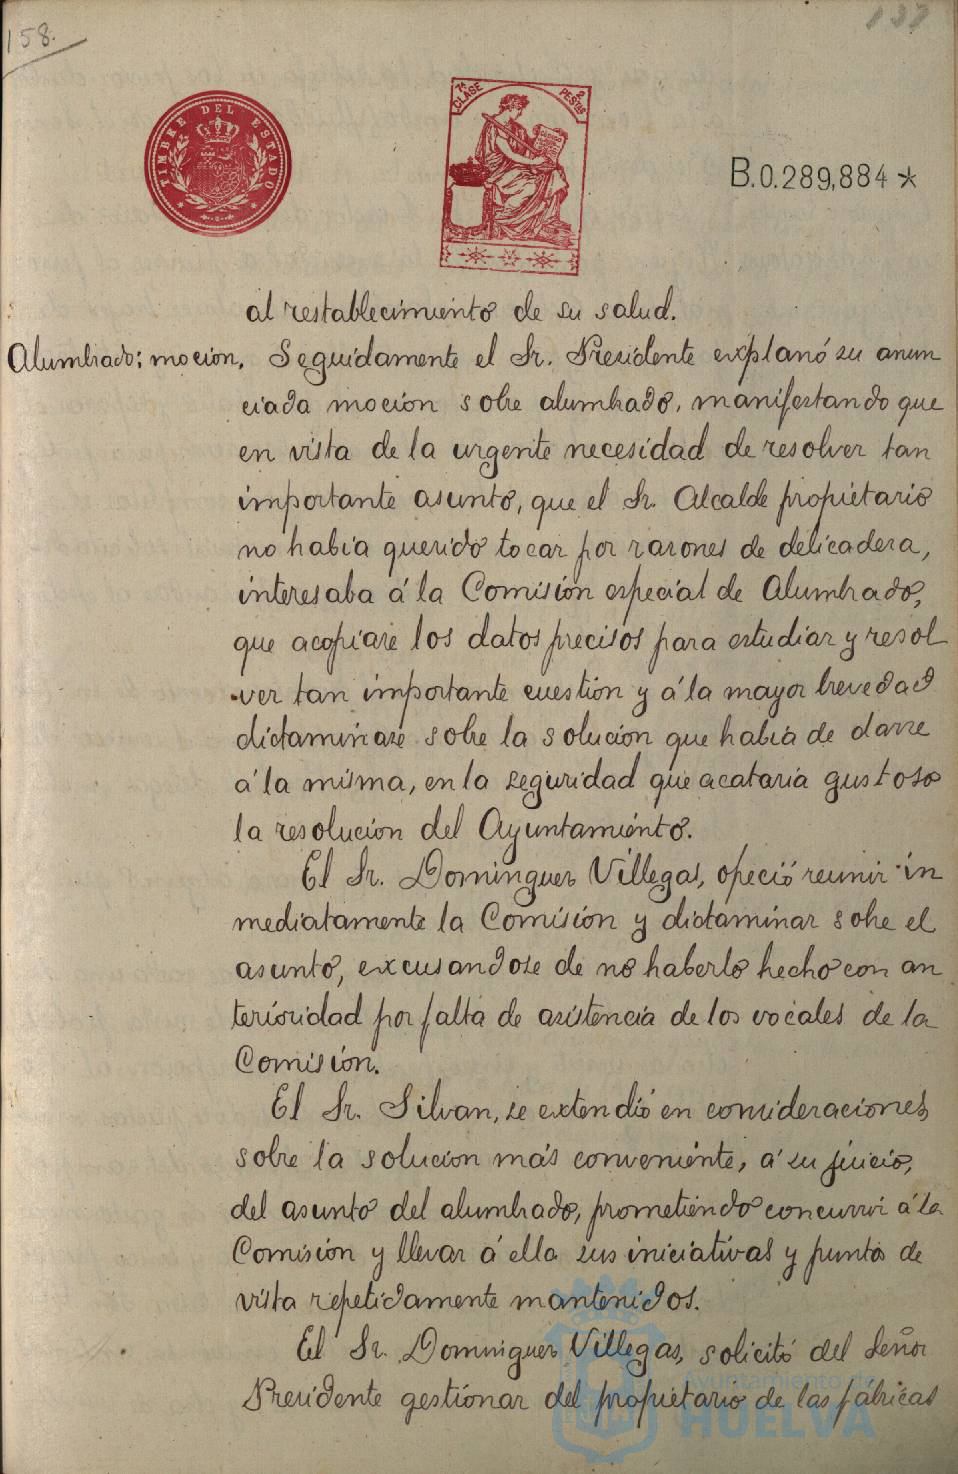 158.
137
TIMBRE DEL ESTADO
7ª CLASE
2 PESETAS
B.0.289,884 *
al restablecimiento de su salud.
Alumbrado; mocion. Seguidamente el Sr. Presidente explanó su anun
ciada mocion sobre alumbrado, manifestando que
en vista de la urgente necesidad de resolver tan
importante asunto, que el Sr. Alcalde propietario
no habia querido tocar por razones de delicadeza,
interesaba á la Comisión especial de Alumbrado,
que acopiase los datos precisos para estudiar y resol
ver tan importante cuestion y á la mayor brevedad
dictaminase sobre la solucion que habia de darse
á la misma, en la seguridad que acataria gustoso
la resolucion del Ayuntamiento.
El Sr. Dominguez Villegas, ofreció reunir in
mediatamente la Comisión y dictaminar sobre el
asunto, excusandose de no haberlo hecho con an
terioridad por falta de asistencia de los vocales de la
Comisión.
El Sr. Silvan, se extendió en consideraciones
sobre la solucion más conveniente, á su juicio,
del asunto del alumbrado, prometiendo concurrir á la
Comisión y llevar á ella sus iniciativas y puntos de
vista repetidamente mantenidos.
El Sr. Dominguez Villegas, solicitó del Señor
Presidente gestionar del propietario de las fábricas
Ayuntamiento de
HUELVA